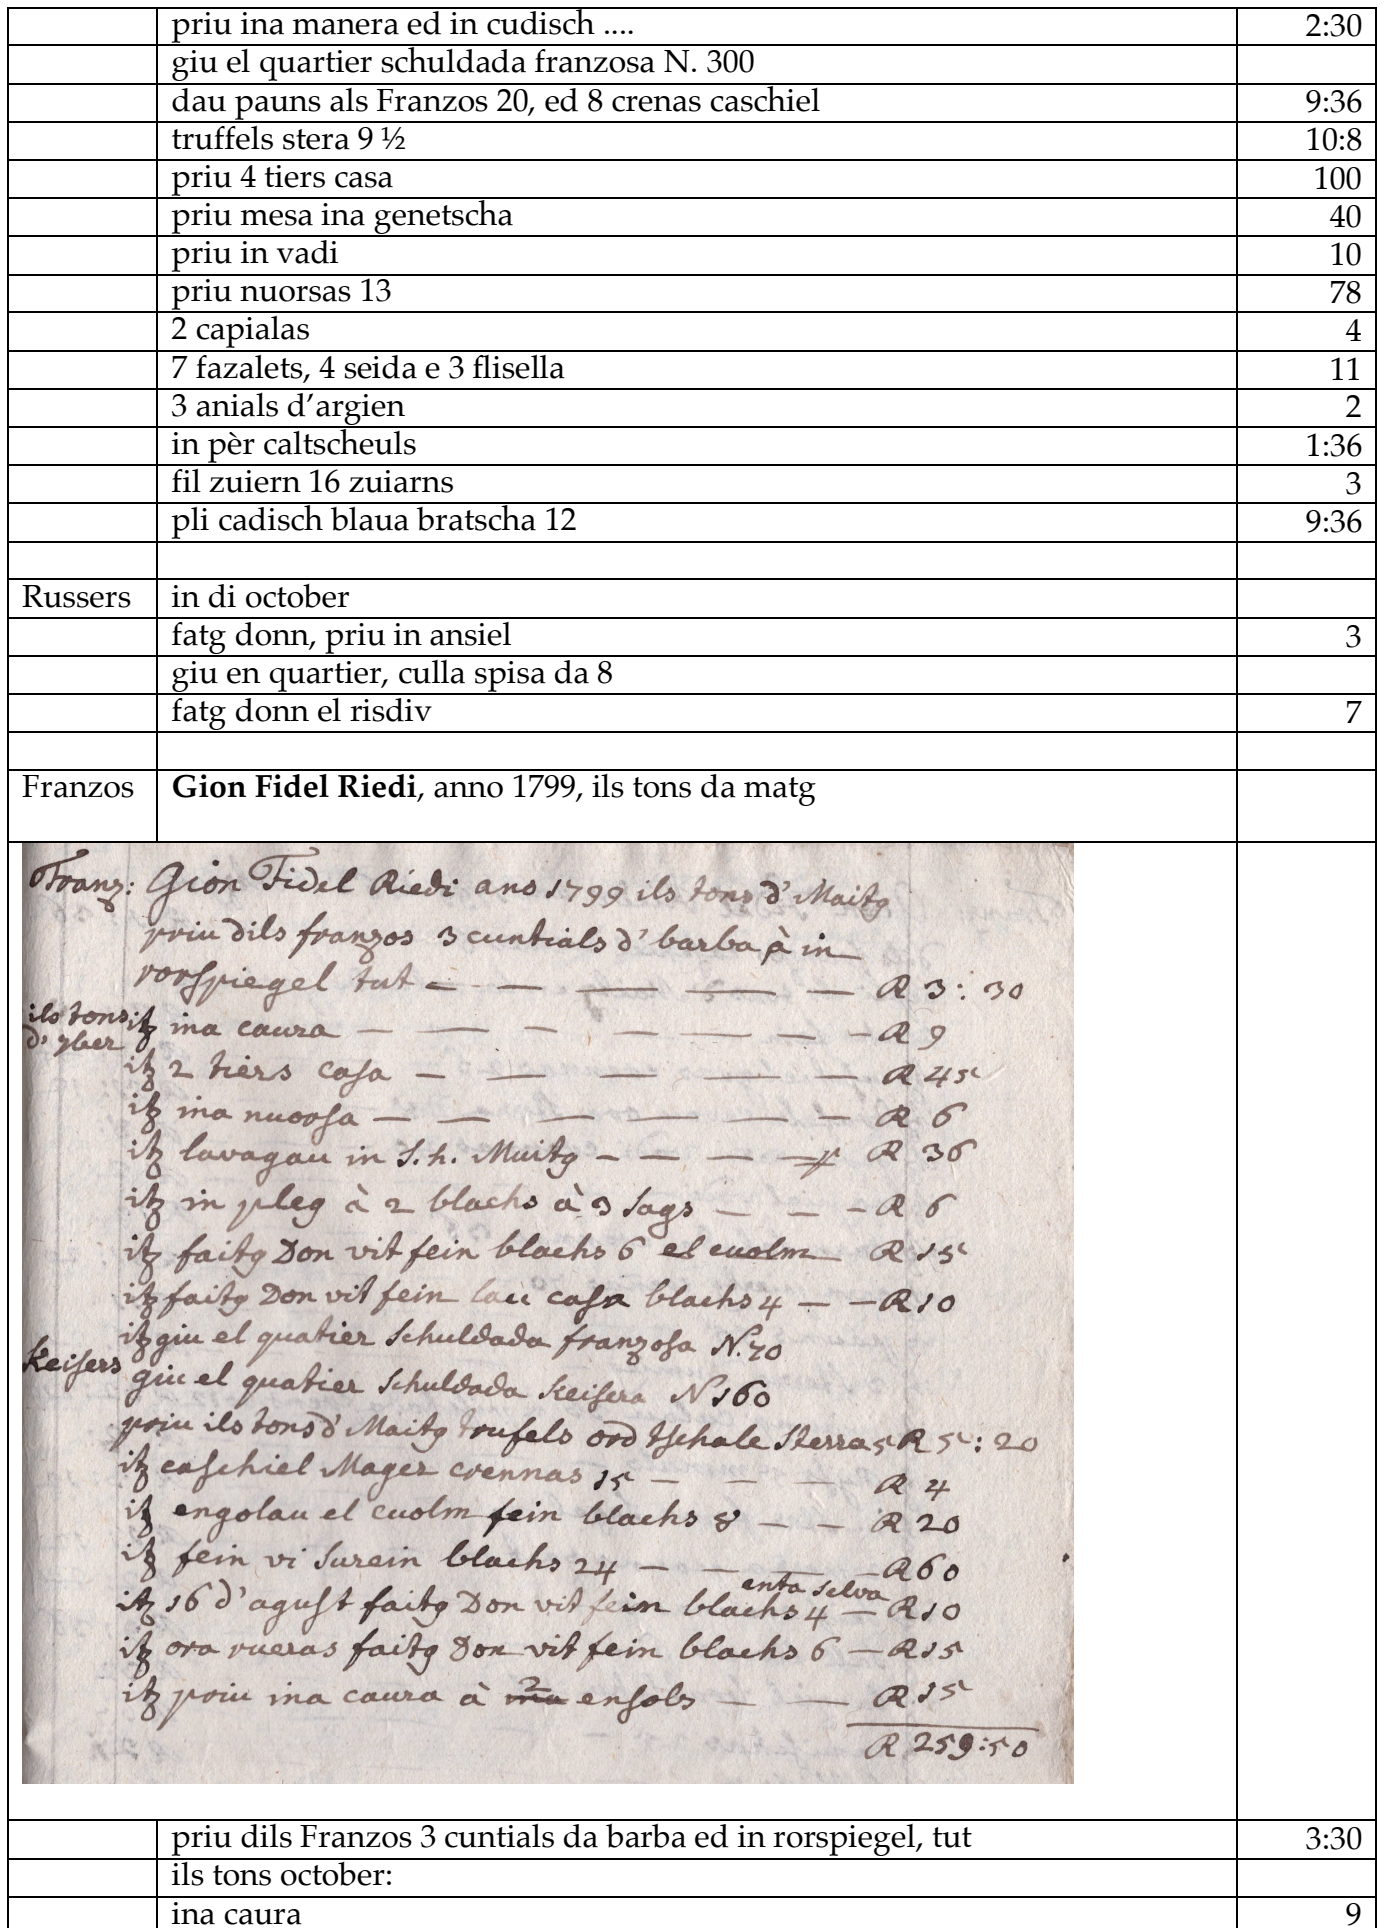 priu ina manera ed in cudisch .... 2:30
giu el quartier schuldada franzosa N. 300
dau pauns als Franzos 20, ed 8 crenas caschiel 9:36
truffels stera 9 ½ 10:8
priu 4 tiers casa 100
priu mesa ina genetscha 40
priu in vadi 10
priu nuorsas 13 78
2 capialas 4
7 fazalets, 4 seida e 3 flisella 11
3 anials d’argien 2
in pèr caltscheuls 1:36
fil zuiern 16 zuiarns 3
pli cadisch blaua bratscha 12 9:36
Russers in di october
fatg donn, priu in ansiel 3
giu en quartier, culla spisa da 8
fatg donn el risdiv 7
Franzos Gion Fidel Riedi, anno 1799, ils tons da matg
Franz: Gion Fidel Riedi ano 1799 ils tons d' Maitg
priu dils franzos 3 cuntials d' barba à in
rorspiegel tut — — — — — R 3: 30
ils tons d' 9ber itz ina caura — — — — — — R 9
itz 2 tiers casa — — — — — R 45
itz ina nuorsa — — — — — R 6
itz lavagau in S. h. Muitg — — — — R 36
itz in pleg à 2 blachs à 3 sags — — — R 6
itz faitg Don vit fein blachs 6 el cuolm R 15
itz faitg Don vit fein lau casa blachs 4 — — R 10
itz giu el quatier schuldada franzosa N. 70
Keisers giu el quatier schuldada Keisera N 160
priu ils tons d' Maitg trufels ord tschale sterra 5 R 5: 20
itz caschiel Mager crennas 15 — — — R 4
itz engolau el cuolm fein blachs 8 — — R 20
itz fein vi surein blachs 24 — — — — R 60
itz 16 d'agust faitg Don vit fein blachs 4 enta selva — R 10
itz ora rueras faitg Don vit fein blachs 6 — R 15
itz priu ina caura à 2 ensols — — R 15
R 259:50
priu dils Franzos 3 cuntials da barba ed in rorspiegel, tut 3:30
ils tons october:
ina caura 9